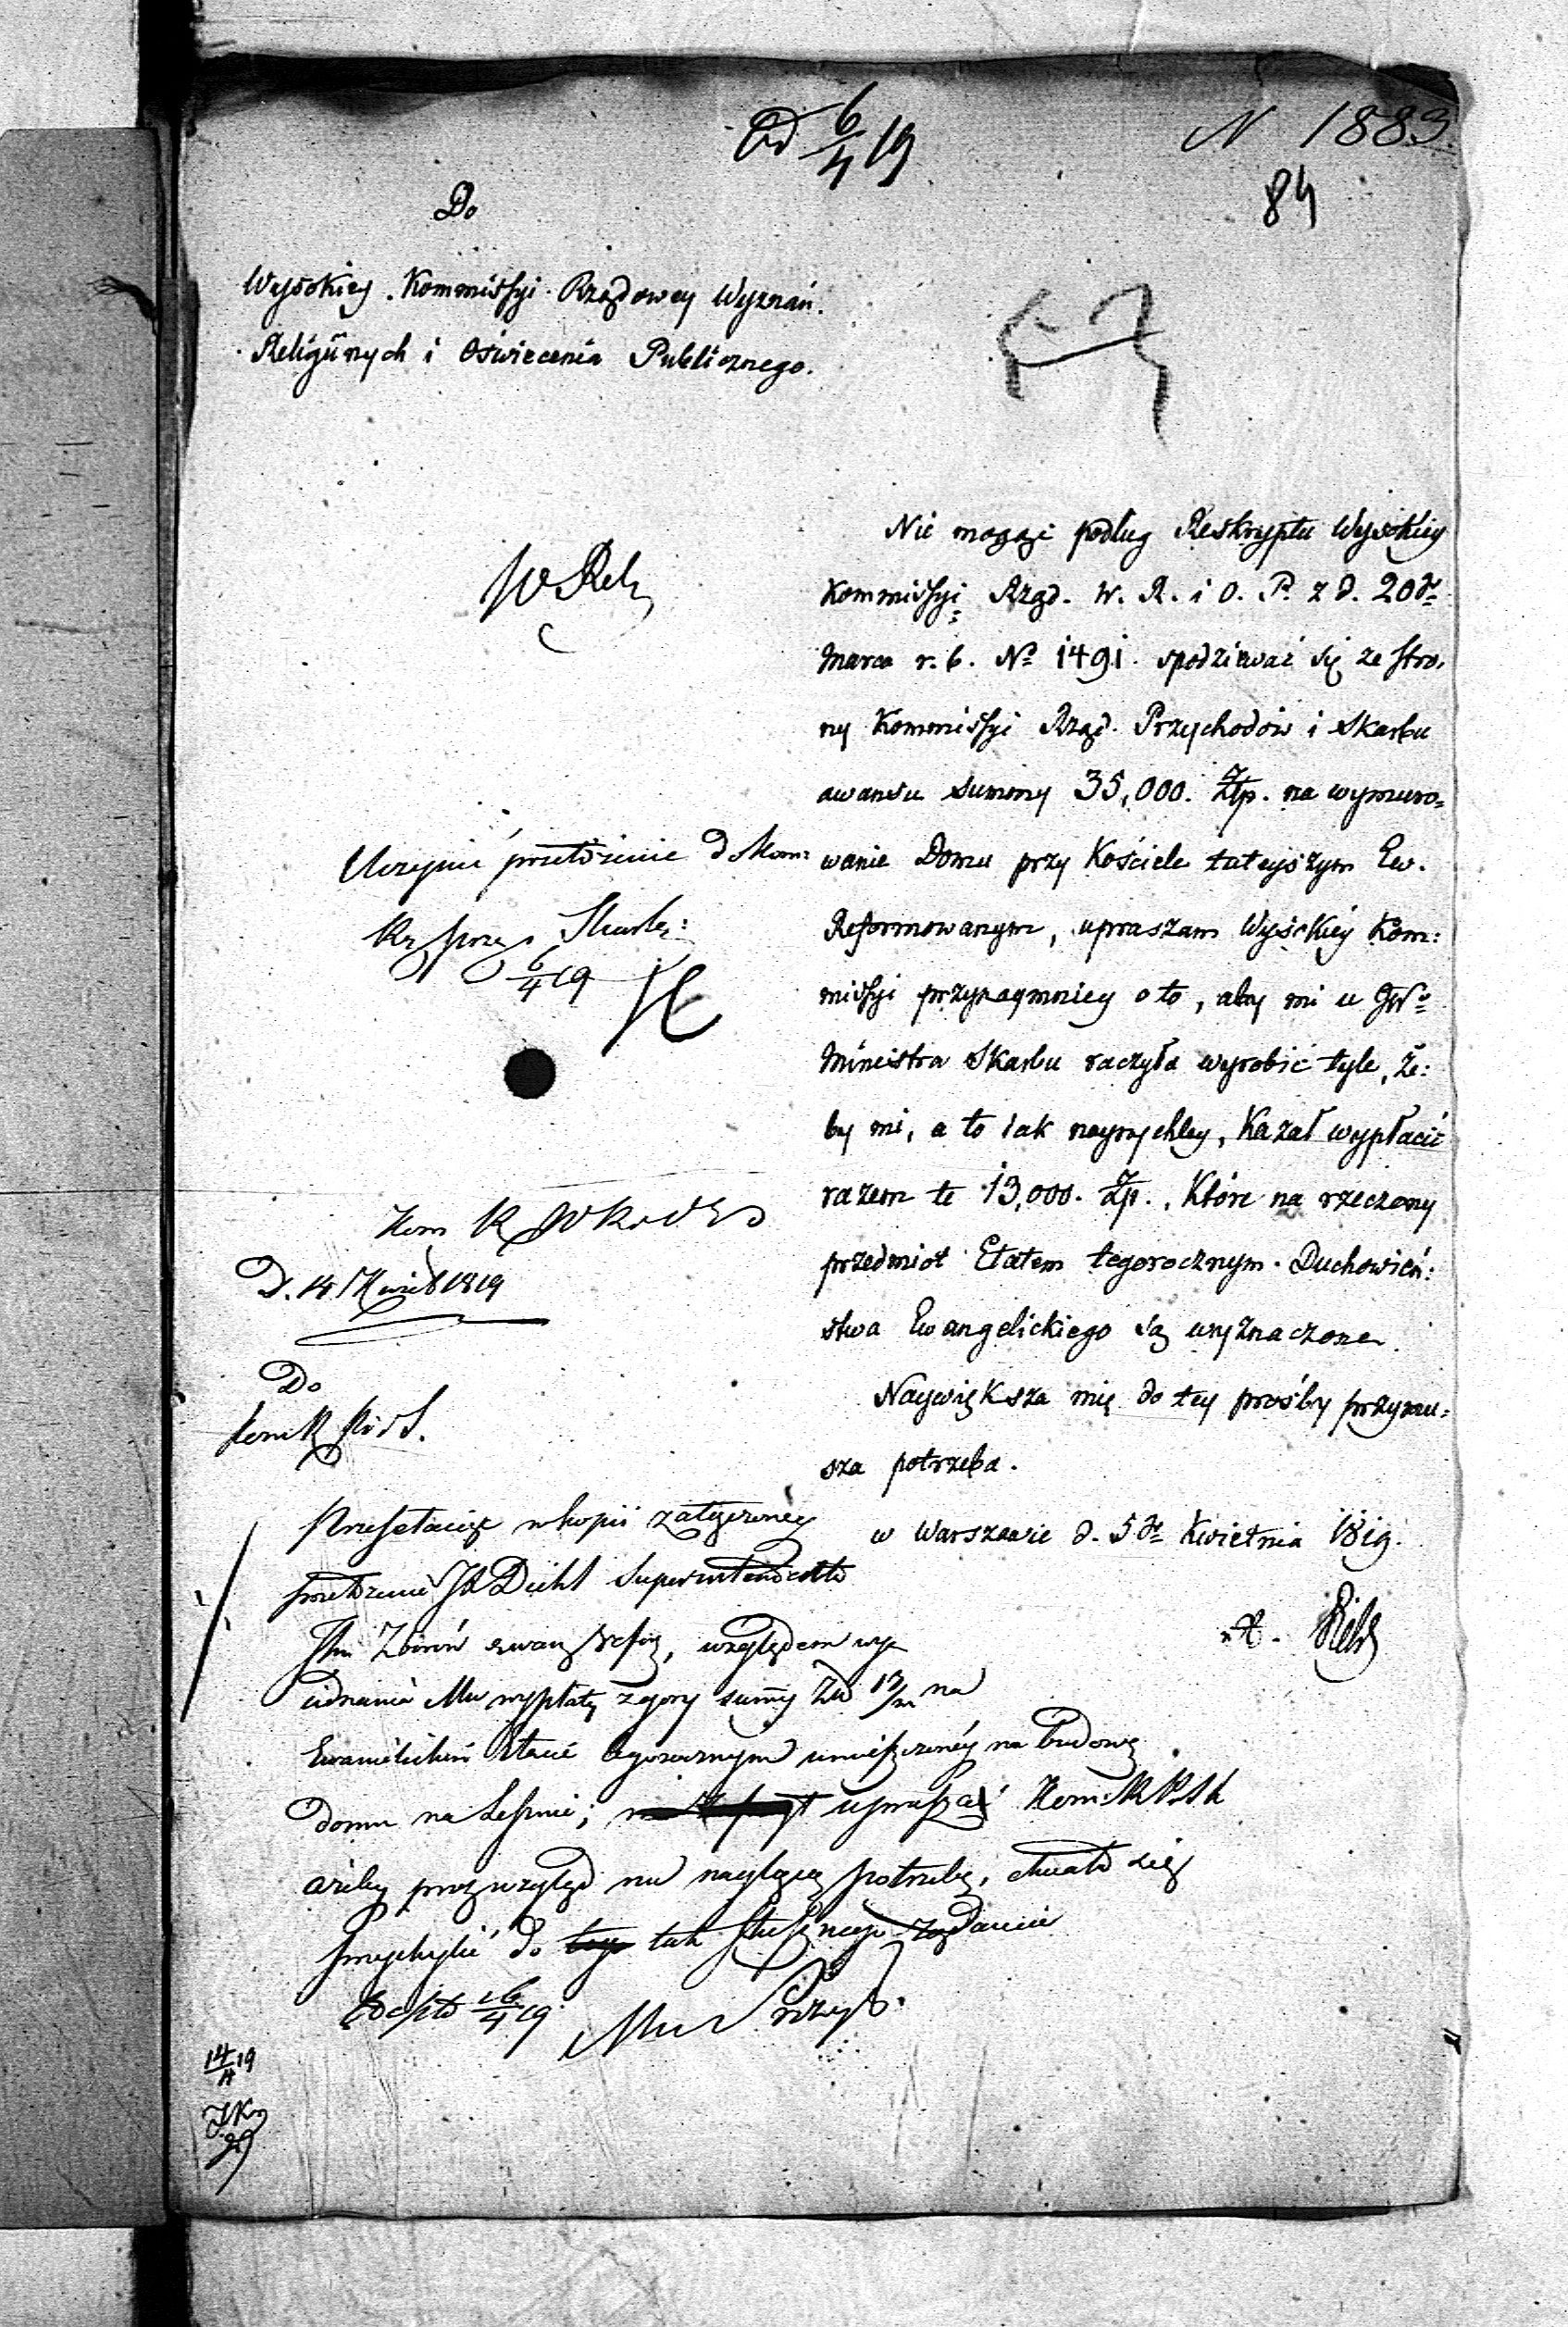 6/4 19
N 1883.
84
Do
Wysokiey Kommissyi Rządowey Wyznań
Religiinych i Oświecenia Publicznego.
Nie mogąc podług Reskryptu Wysokiey
Kommissyi Rząd. W. R. i O. P. z d. 20
Marca r. b. No 1491. spodziewać się ze stro,
ny Kommissyi Rząd. Przychodów i Skarbu
awansu summy 35,000. Złp. na wymuro=
wanie Domu przy Kościele tuteyszym Ew.
Reformowanym, upraszam Wysokiéy Kom:
missyi przynaymniey o to, aby mi u
Ministra Skarbu raczyła wyrobić tyle, że:
by mi, a to iak nayrychley, Kazał wypłacić
razem te 13,000. Zp., Które na rzeczony
przedmiot Etatem tegorocznym Duchowień:
stwa Ewangelickiego są wyznaczone.
Naywiększa mię do tey prośby przymu:
sza potrzeba.
w Warszawie d. 5 Kwietnia 1819.
Diehl
Uczynić przełożenie do Kom:
6/4 19
D. 14 1819
Do
Przesełaiąc w kopii załączoney
przełożenie Diehl Superintendenta
Zborów względem wy
iednania Mu wypłaty z gory summy 13/m na
Etacie tegorocznym umieszczonéy na budowę
domu na Lesznie; upraszać Kom:
ażeby przez wzgląd na naglącą potrzebę, chciała się
przychylić do tego tak słusznego żądania
16/4 19
14/4 19